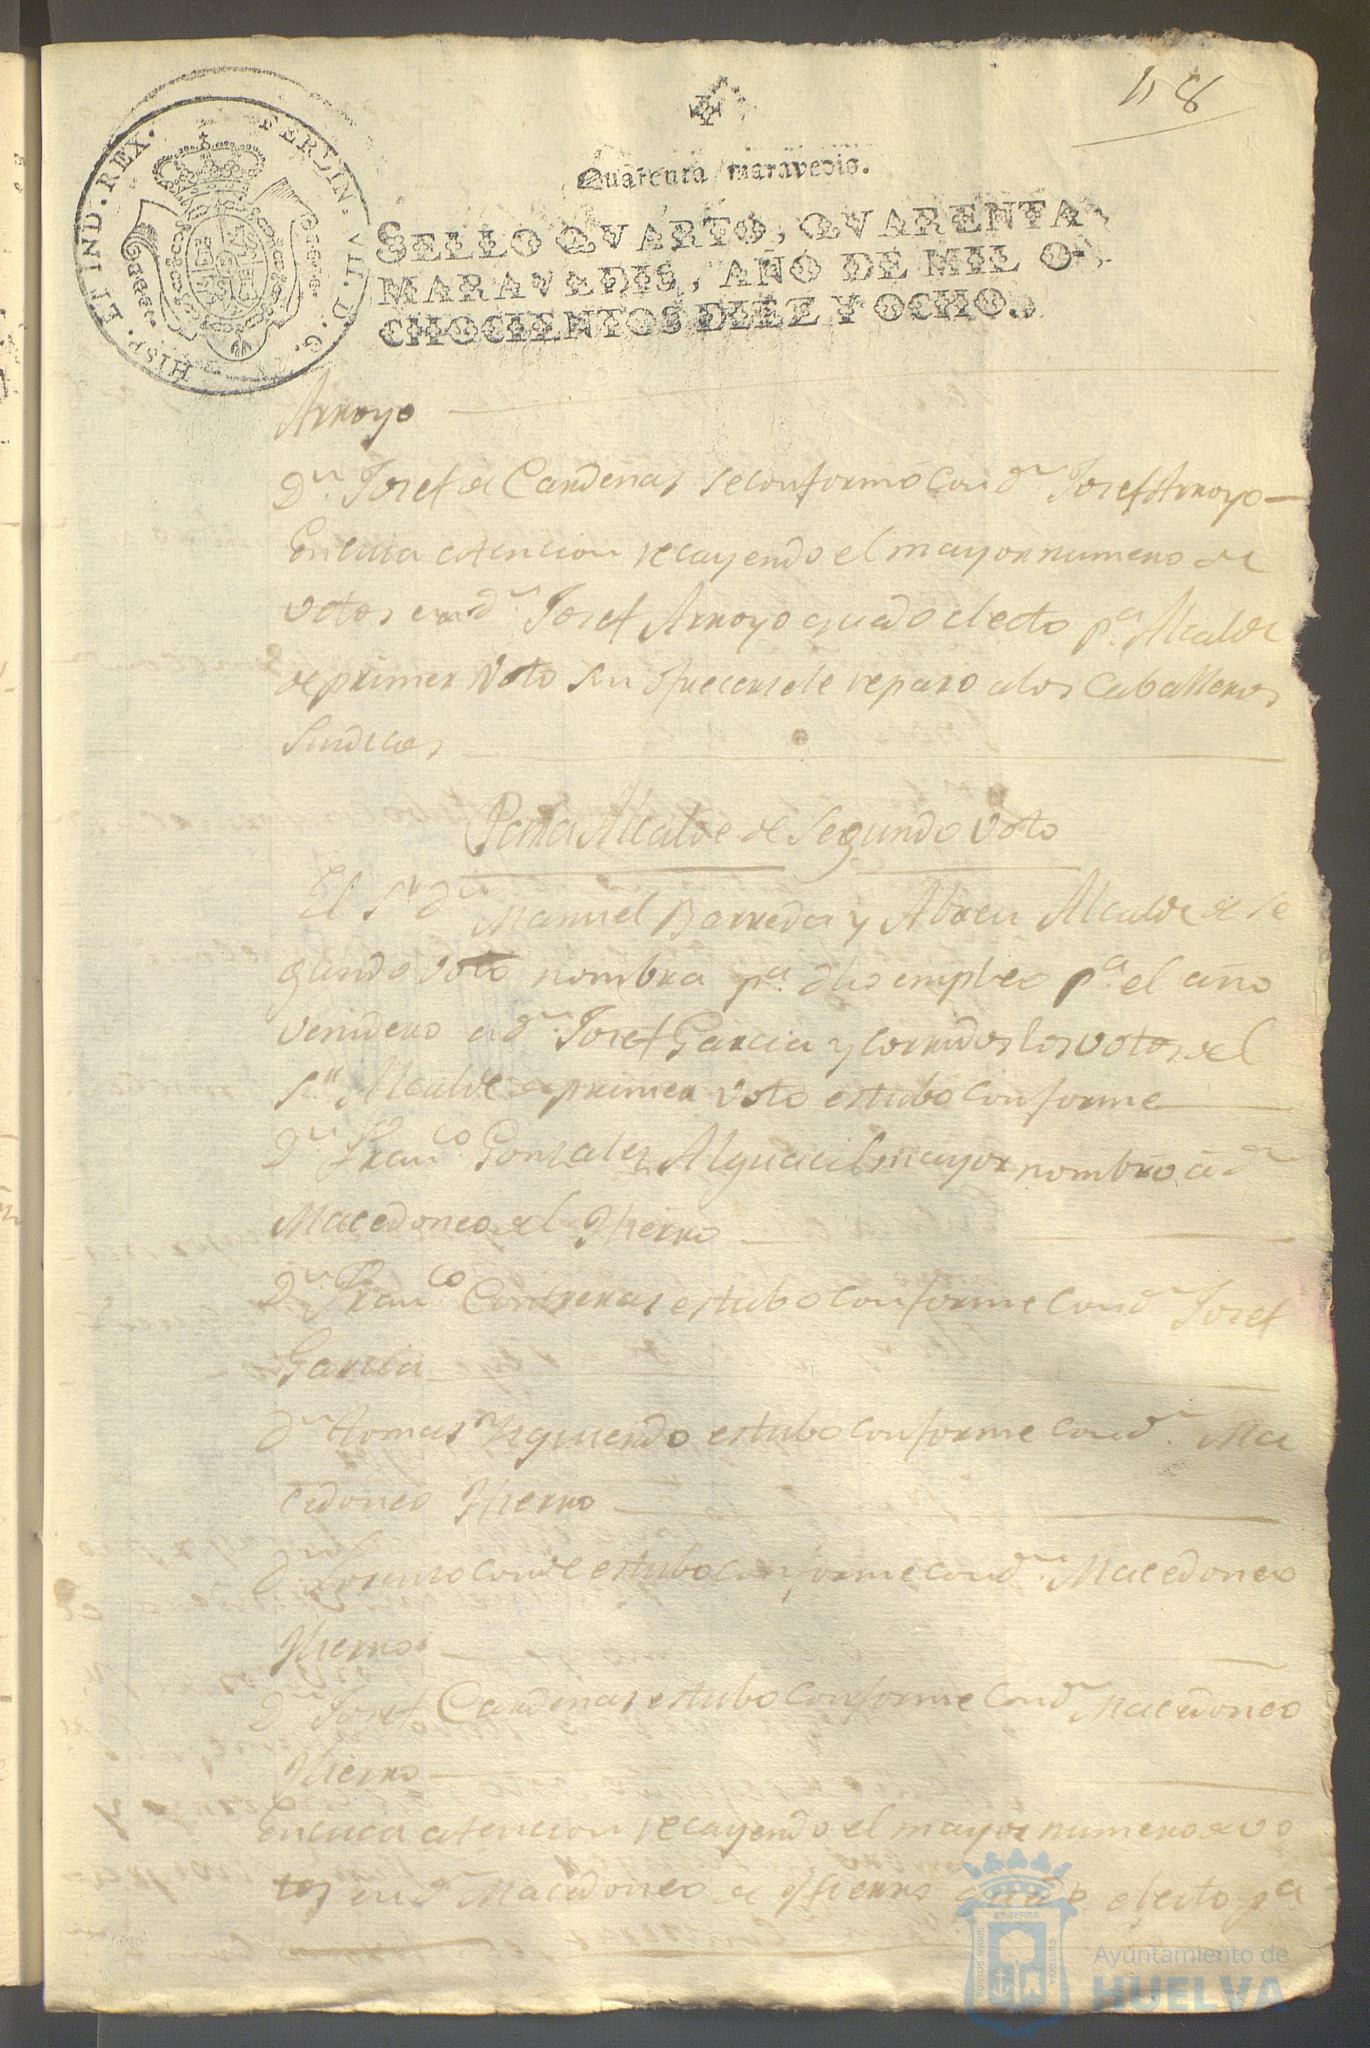 158
Quarenta maravedis.
HISP. ET IND. REX. FERDIN. VII. D. G.
SELLO QVARTO, QVARENTA
MARAVEDIS, AÑO DE MIL O-
CHOCIENTOS DIEZ Y OCHO.
Arroyo
Dn. Josef de Cardenas se conformo con dn. Josef Arroyo
En cuia atencion recayendo el mayor numero de
votos en dn. Josef Arroyo quedo electo pa. Alcalde
de primer Voto sin ofrecersele reparo a los Caballeros
Sindicos
Para Alcalde de Segundo voto
El Sr. dn. Manuel Barreda y Abreu Alcalde de Se
gundo voto nombra pa. dho empleo pa. el año
venidero a dn. Josef Garcia y corridos los votos el
Sr. Alcalde de primer voto estubo conforme
Dn. Franco. Gonzalez Alguacil mayor nombró á dn.
Macedoneo del Hierro
Dn. Franco. Contreras estubo conforme con dn. Josef
Garcia
dn. Tomas Yzquierdo estubo conforme con dn. Ma
cedoneo Hierro
dn. Lorenzo Conde estubo conforme con dn. Macedoneo
Hierro
dn. Josef Cardenas estubo conforme con dn. Macedoneo
Hierro
En cuia atencion recayendo el mayor numero de vo
tos en dn. Macedoneo de Hierro quedo electo pa
Ayuntamiento de
HUELVA